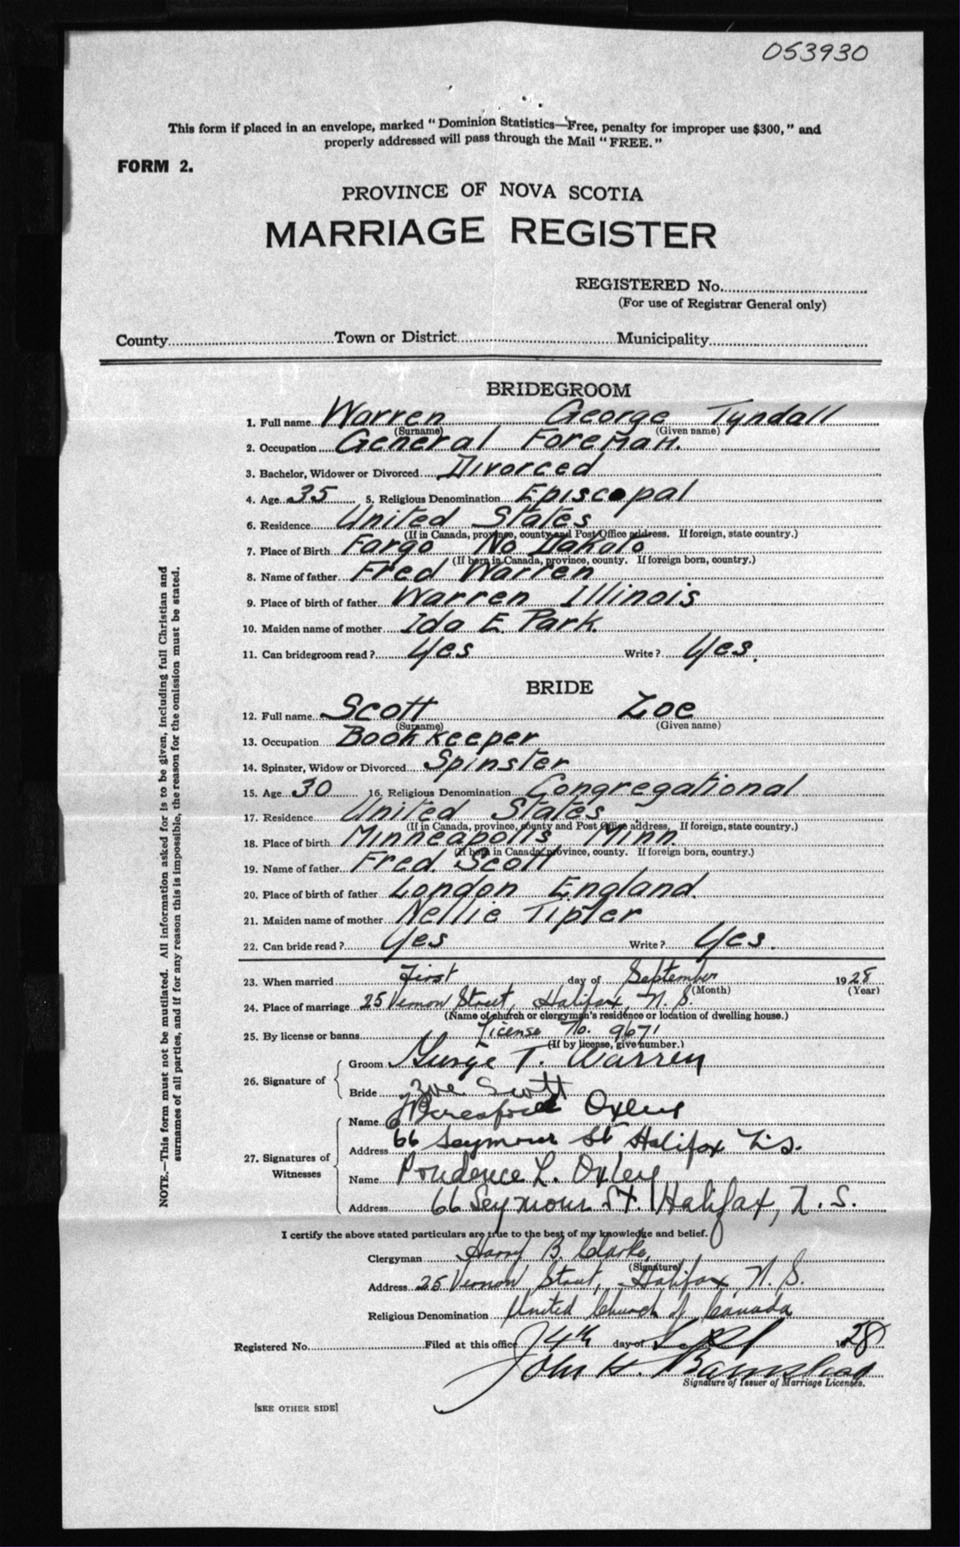 053930
This form if placed in an envelope, marked "Dominion Statistics—Free, penalty for improper use $300," and
properly addressed will pass through the Mail "FREE."
FORM 2.
PROVINCE OF NOVA SCOTIA
MARRIAGE REGISTER
REGISTERED No.
(For use of Registrar General only)
County Town or District Municipality
BRIDEGROOM
1. Full name Warren George Tyndall
(Surname) (Given name)
2. Occupation General Foreman.
3. Bachelor, Widower or Divorced Divorced
4. Age 35 5. Religious Denomination Episcopal
6. Residence United States
(If in Canada, province, county and Post Office address. If foreign, state country.)
7. Place of Birth Fargo No Dakota
(If born in Canada, province, county. If foreign born, country.)
8. Name of father Fred Warren
9. Place of birth of father Warren Illinois
10. Maiden name of mother Ida E Park.
11. Can bridegroom read? Yes Write? Yes.
BRIDE
12. Full name Scott Zoe
(Surname) (Given name)
13. Occupation Book Keeper
14. Spinster, Widow or Divorced Spinster
15. Age 30 16. Religious Denomination Congregational
17. Residence United States
(If in Canada, province, county and Post Office address, If foreign, state country.)
18. Place of birth Minneapolis Minn.
(If born in Canada, province, county. If foreign born, country.)
19. Name of father Fred. Scott
20. Place of birth of father London England.
21. Maiden name of mother Nellie Tipler
22. Can bride read? Yes Write? Yes.
23. When married First day of September 1928
(Month) (Year)
24. Place of marriage 25 Vernon Street, Halifax, N. S.
(Name of church or clergyman's residence or location of dwelling house.)
25. By license or banns License No. 9671
(If by license, give number.)
26. Signature of
Groom George T. Warren
Bride Zoe Scott
27. Signatures of Witnesses
Name Beresford Oxley
Address 66 Seymour St Halifax N.S.
Name Prudence L. Oxley
Address 66 Seymour St. Halifax, N. S.
I certify the above stated particulars are true to the best of my knowledge and belief.
Clergyman Harry B. Clarke,
(Signature)
Address 25 Vernon Street, Halifax, N. S.
Religious Denomination United Church of Canada
Registered No. Filed at this office 4th day of Sept 1928
John H. Barnstead
Signature of Issuer of Marriage Licenses.
[SEE OTHER SIDE]
NOTE.—This form must not be mutilated. All information asked for is to be given, including full Christian and
surnames of all parties, and if for any reason this is impossible, the reason for the omission must be stated.